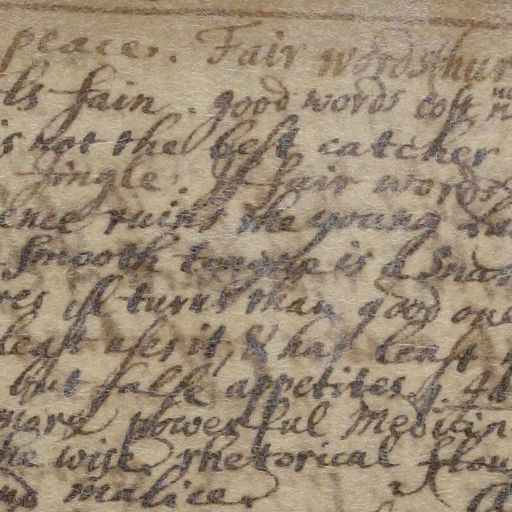 peace. Fair words hur
ls fain. good words cost
is not the best catcher
Jingle. If fair words
ence ruins the young
Smooth tongue is a Snar
res ill turns than good one
least uses it, & has least
but false appetites
more powerful Medicin
he wise rhetorical flou
malice